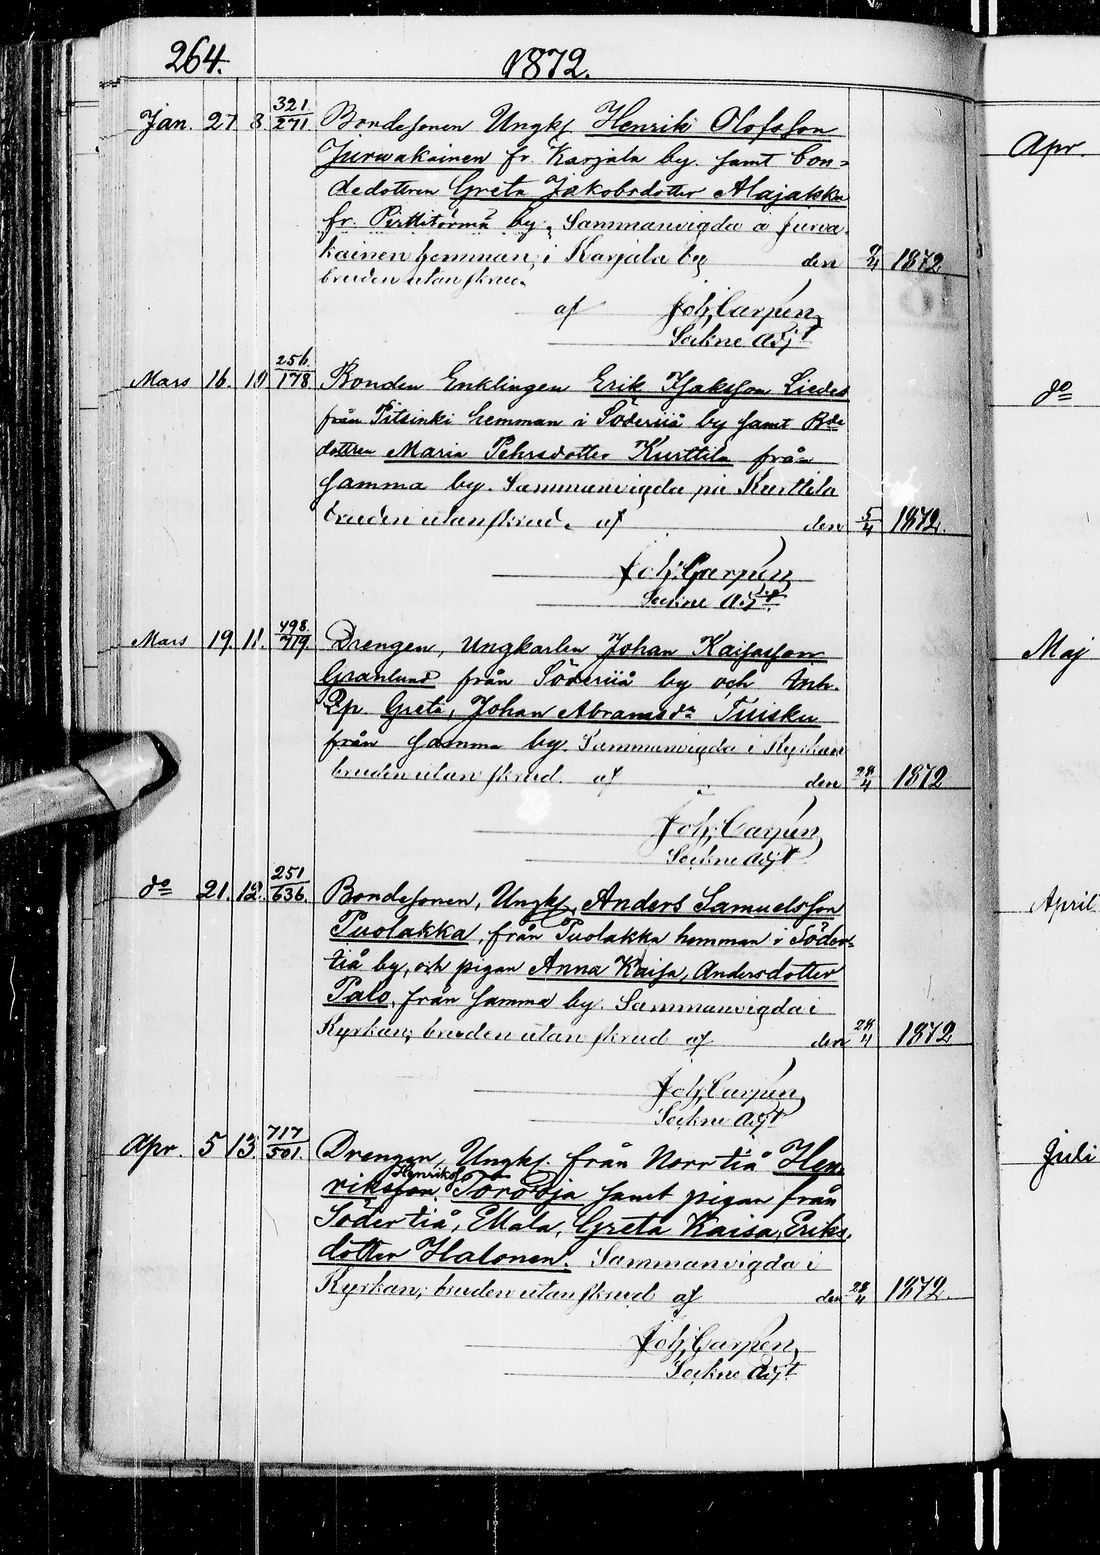 264.
1872.
Jan. 27 8 321/271 Bondesonen Ungk. Henrik Olofsson
Jurwakainen fr. Karjala by. samt bon=
dedottren Greta Jakobsdotter Alajakku
fr. Pirttitörmä by, Sammanvigda å Jurva-
kainen hemman, i Karjala by den /4 1872
bruden utan skrud.
af Joh, Carpén,
Sockne Adjt
Mars 16. 10 256/178 Bonden Enklingen Erik Isaksson Liedes
från Pitsinki hemman i Södertiå by samt Bde
dottren Maria Pehrsdotter Kurttila från
samma by. Sammanvigda på Kurttila
bruden utan skrud. af den 5/4 1872.
Joh, Carpén,
Sockne Adjt
Mars 19. 11. 498/719. Drengen, Ungkarlen Johan Kaisasson
Granlund från Södertiå by och Inh.
Pp. Greta, Johan Abramsdr Tuisku
från samma by. Sammanvigda i Kyrkan
bruden utan skrud. af den 28/4 1872
Joh, Carpén,
Sockne Adjt
do 21. 12. 251/636. Bondesonen, Ungk. Anders Samuelsson
Puolakka, från Puolakka hemman i Söder-
tiå by, och pigan Anna Kaisa, Andersdotter
Palo, från samma by. Sammanvigda i
Kyrkan; bruden utan skrud af den 28/4 1872
Joh, Carpén,
Sockne Adjt
Apr. 5 13. 717/501. Drengen, Ungk. från Norrtiå Hen-
Henriks
riksson, Törödja samt pigan från
Södertiå, Mala, Greta Kaisa, Eriks-
dotter Halonen. Sammanvigda i
Kyrkan; bruden utan skrud af den 28/4 1872.
Joh, Carpén,
Sockne Adjt
Apr.
do
Maj
April
Juli